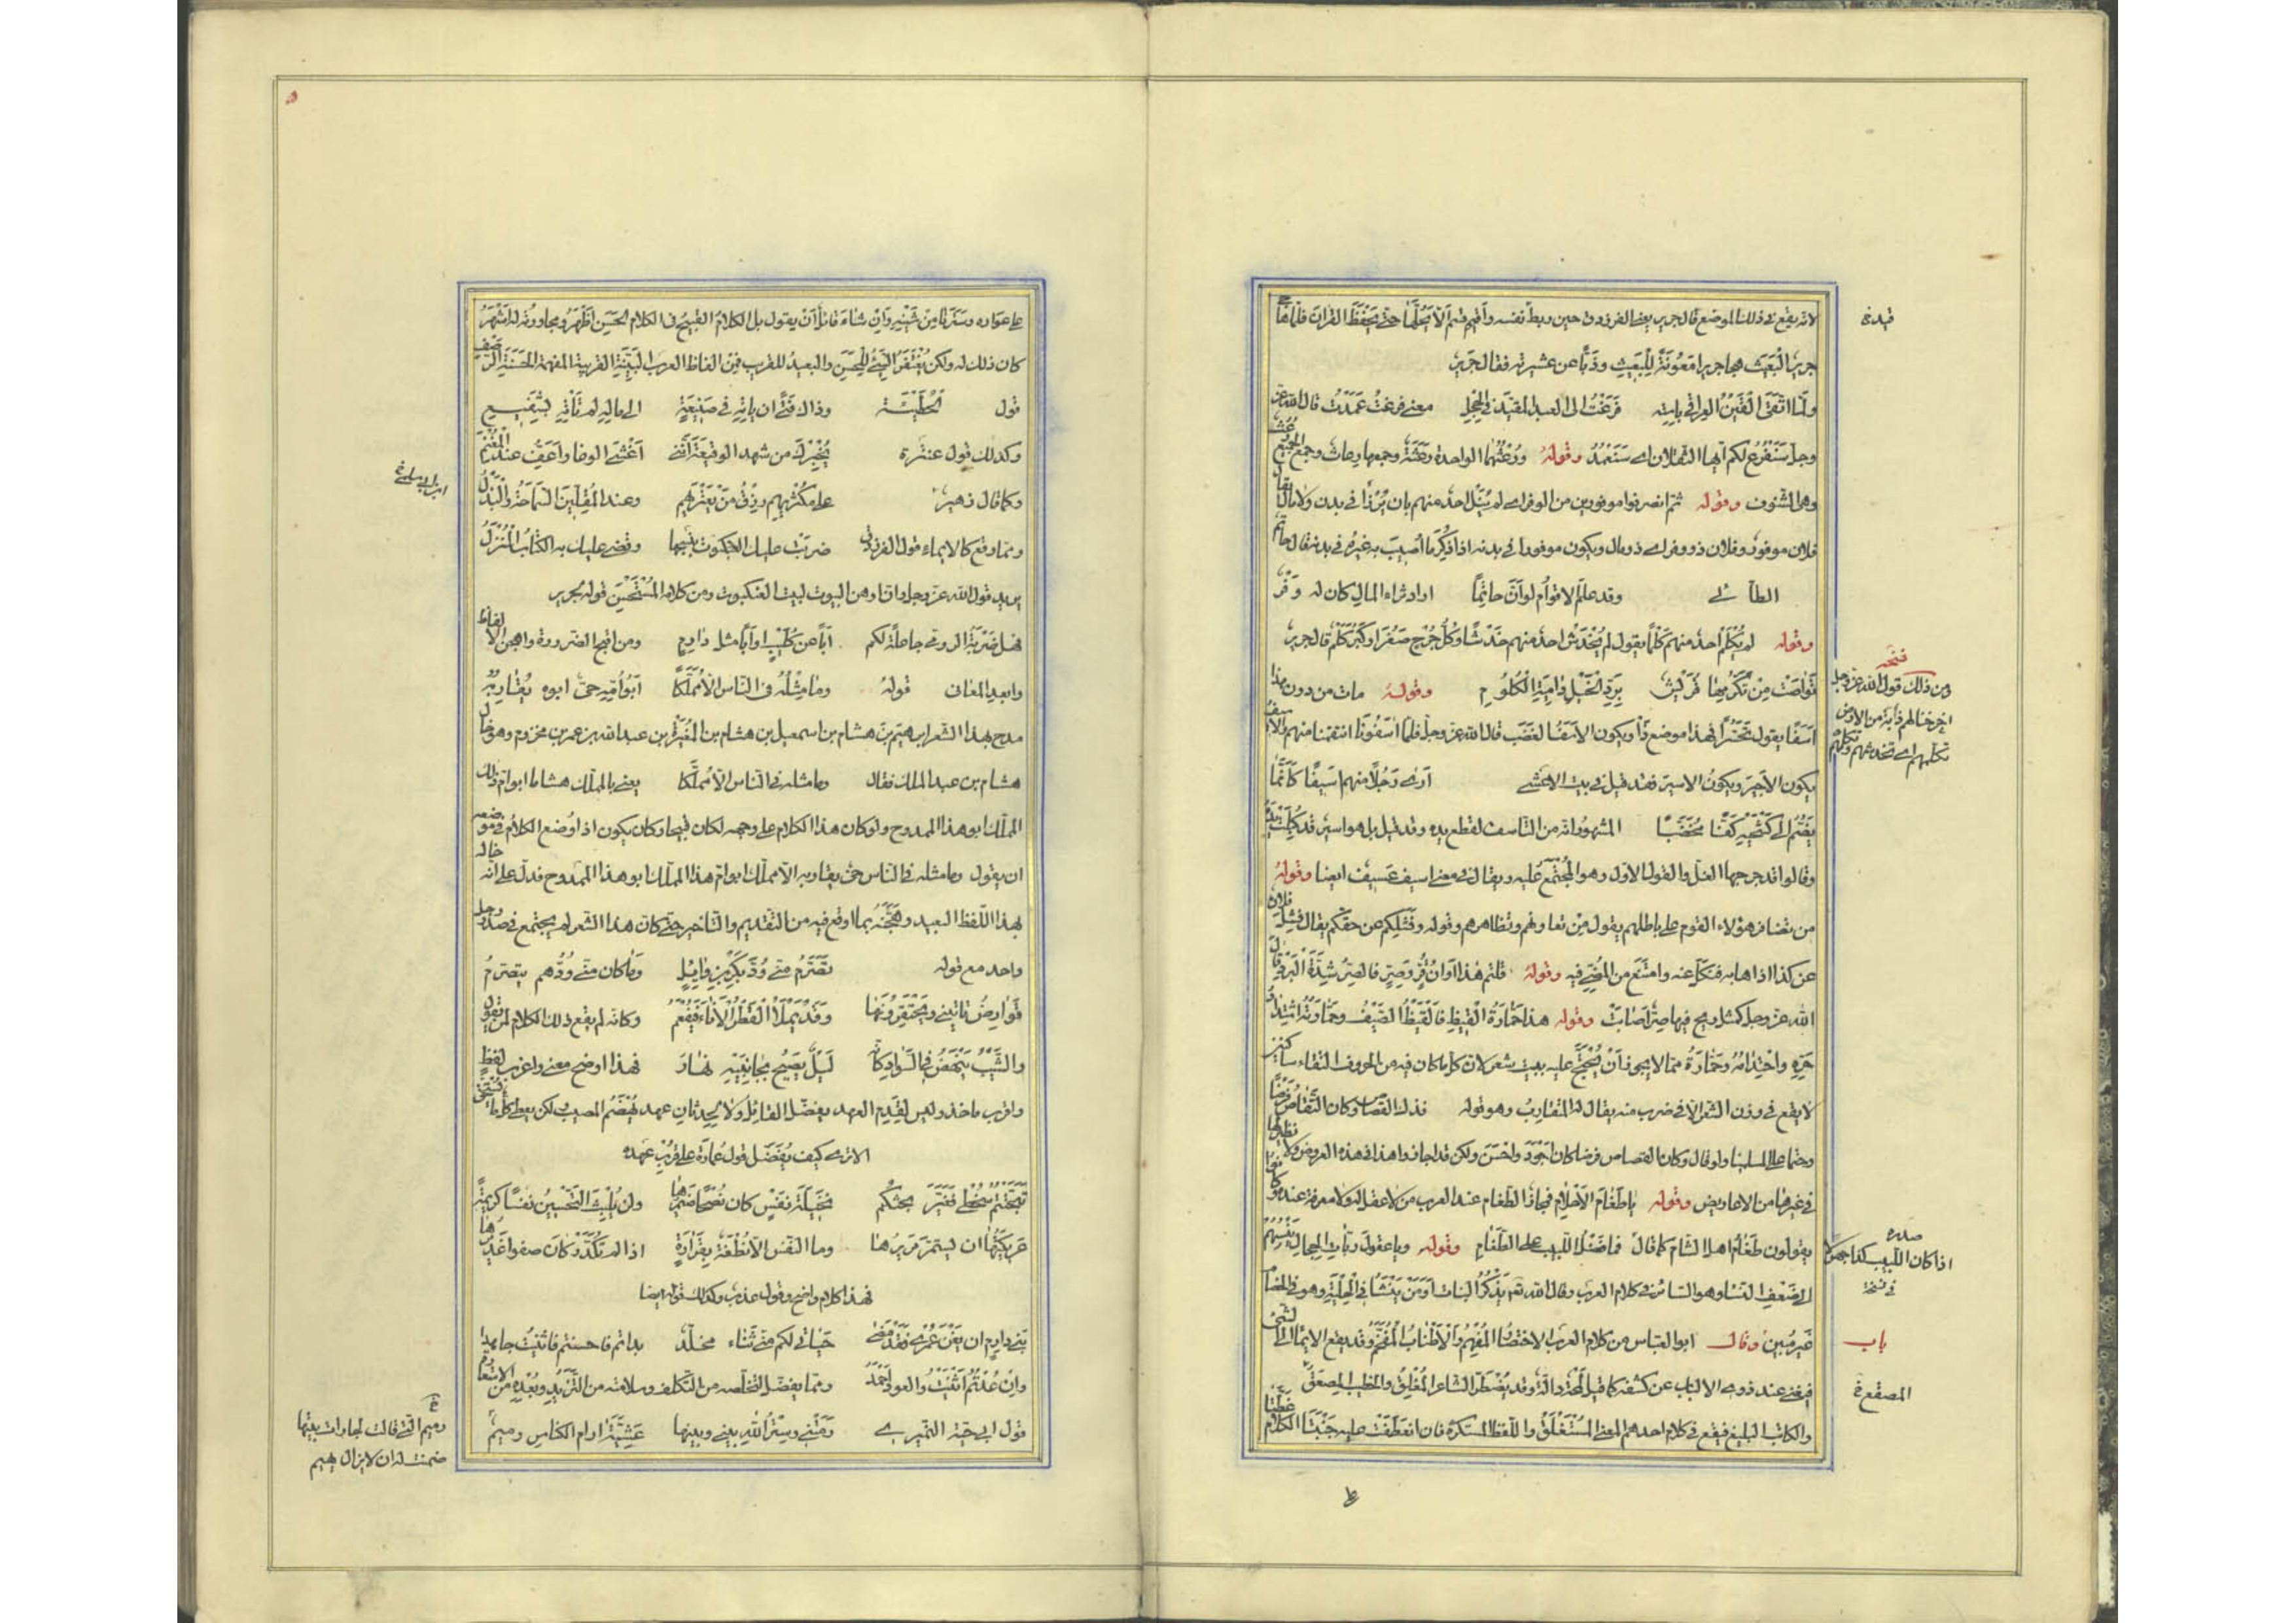 لانه يقع في ذلك الموضع قال جرير يعني الفرزدق حين ربط نفسه واقسم قسم ألا يحلها حتى يحفظ القران فلما هجا
قيده خ
جرير البعيث هجا جريرا معونة للبعيث وذبا عن عشيرته فقال جرير
ولما اتقى القين العراقي باسته فرغت الى العبد المقيد في الحجل معنى فرغت عمدت قال الله عز
وجل سنفرغ لكم ايها الثقلان اي سنعمد وقوله ورعثهما الواحدة رعثة وجمعها رعاث وجمع الجمع رعث
وهي الشنوف وقوله ثم انصرفوا موفورين من الوفر اي لم ينل احد منهم بان يرزا في بدن ولا مال يقال
فلان موفور وفلان ذو وفر اي ذو مال ويكون موفورا في بدنه اذا ذكر ما اصيب به غيره في بدنه قال حاتم
الطائي وقد علم الاقوام لو ان حاتما اراد ثراء المال كان له وفر
وقوله لم يكلم احد منهم كلما يقول لم يخدش احد منهم خدشا وكل جرح صغر او كبر كلم قال جرير
نسخه
ومن ذلك قول الله عز وجل
اخرجنا لهم دابة من الارض
تكلمهم اي تخدشهم
تواصت من تكرمها قريش برد الخيل دامية الكلوم وقوله مات من دون هذا
اسفا يقول تحسرا فهذا موضع ذا ويكون الاسف الغضب قال الله عز وجل فلما اسفونا انتقمنا منهم والاسيف
يكون الاجير ويكون الاسير فقد قيل في بيت الاعشى ارى رجلا منهم اسيفا كانما
يضم الى كشحيه كفا مخضبا المشهور انه من التاسف لقطع يده وقد قيل بل هو اسير قد كبلت يده
وقالوا قد جرحها الغل والقول الاول وهو المجتمع عليه ويقال في معنى اسيف عسيف ايضا وقوله
من تضافر هؤلاء القوم على باطلهم يقول من تعاونهم وتظاهرهم وقوله وفشلكم عن حقكم يقال فشل فلان
عن كذا اذا هابه فنكل عنه وامتنع من المضي فيه وقوله قلتم هذا اوان قر وصر فالصر شدة البرد قال
الله عز وجل كمثل ريح فيها صر اصابت وقوله هذه حمارة القيظ فالقيظ الصيف وحمارته اشتداد
حره واحتدامه وحمارة مما لا يجوز ان يحتج عليه ببيت شعر لان كل ما كان فيه من الحروف التقاء ساكنين
لا يقع في وزن الشعر الا في ضرب منه يقال له المتقارب وهو قوله فذاك القصاص وكان التقاص فرضا
وحتما على المسلمينا ولو قال وكان القصاص فرضا كان اجود واحسن ولكن قد اجازوا هذا في هذه العروض ولا نظير لها
في غيرها من الاعاريض وقوله يا طغام الاحلام فمجاز الطغام عند العرب من لا عقل له ولا معرفة عنده وكانوا
يقولون طغام اهل الشام كما قال فما فضل اللبيب على الطغام وقوله ويا عقول ربات الحجال ينسبهم
صدره
اذا كان اللبيب كذا جهولا
في نسخة
الى ضعف النساء وهو السائر في كلام العرب وقال الله تع يذكر البنات اومن ينشا في الحلية وهو في الخصام
غير مبين وقال ابو العباس من كلام العرب الاختصار المفهم والاطناب المفخم وقد يقع الايماء الى الشيء
باب
فيغني عند ذوي الالباب عن كشفه كما قيل لمحة دالة وقد يضطر الشاعر المفلق والخطيب المصقع
المصقع خ
والكاتب البليغ فيقع في كلام احدهم المعنى المستغلق واللفظ المستكره فان انعطفت عليه جنبتا الكلام غطتا
على عواره وسترتا من شينه وان شاء قائل ان يقول بل الكلام القبيح في الكلام الحسن اظهر ومجاورته له اشهر
كان ذلك له ولكن يغتفر السيئ للحسن والبعيد للقريب فمن الفاظ العرب البينة القريبة المفهمة الحسنة الرصف
قول الحطيئة وذاك فتى ان ياته في صنيعة الى ماله لم تاته بشفيع
وكذلك قول عنترة يخبرك من شهد الوقيعة انني اغشى الوغا واعف عند المغنم
وكما قال زهير على مكثريهم رزق من يعتريهم وعند المقلين السماحة والبذل
ابن ابي سلمى خ
ومما وقع كالايماء قول الفرزدق ضربت عليك العنكبوت بنسجها وقضى عليك به الكتاب المنزل
يريد قول الله عز وجل وان اوهن البيوت لبيت العنكبوت ومن كلامه المستحسن قوله لجرير
فهل ضربة الرومي جاعلة لكم ابا عن كليب او ابا مثل دارم ومن اقبح الضرورة واهجن الالفاظ
وابعد المعاني قوله وما مثله في الناس الا مملكا ابو امه حي ابوه يقاربه
مدح بهذا الشعر ابرهيم بن هشام بن اسمعيل بن هشام بن المغيرة بن عبد الله بن عمر بن مخزوم وهو خال
هشام بن عبد الملك فقال وما مثله في الناس الا مملكا يعني بالمملك هشاما ابو ام ذلك
المملك ابو هذا الممدوح ولو كان هذا الكلام على وجهه لكان قبيحا وكان يكون اذا وضع الكلام في موضعه
ان يقول وما مثله في الناس حي يقاربه الا مملك ابو ام هذا المملك ابو هذا الممدوح فدل على انه خاله
بهذا اللفظ البعيد وهجنه بما اوقع فيه من التقديم والتاخير حتى كان هذا الشعر لم يجتمع في صدر رجل
واحد مع قوله تصرم مني ود بكر بن وائل وما كان مني ودهم يتصرم
قوارص تاتيني ويحتقرونها وقد يملا القطر الاناء فيفعم وكانه لم يقع ذلك الكلام لمن يقول
والشيب ينهض في السواد كانه ليل يصيح بجانبيه نهار فهذا اوضح معنى واعرب لفظ
واقرب ماخذ وليس لقدم العهد يفضل القائل ولا لحدثان عهد يهتضم المصيب ولكن يعطى كل ما يستحق
الا ترى كيف يفضل قول عمارة على قرب عهده
تبحثتم سخطي فغير بحثكم نخيلة نفس كان نصحا ضميرها ولن يلبث التخشين نفسا كريمة
عريكتها ان يستمر مريرها وما النفس الا نطفة بقرارة اذا لم تكدر كان صفوا غديرها
فهذا كلام واضح وقول عذب وكذلك قوله ايضا
بني دارم ان يفن عمري فقد مضى حياتي لكم مني ثناء مخلد بداتم فاحسنتم فاثنيت جاهدا
وان عدتم اثنيت والعود احمد ومما يفضل لتخلصه من التكلف وسلامته من التزيد وبعده من الاستعانة
قول ابي حية النميري رمتني وستر الله بيني وبينها عشية ارام الكناس رميم
خ
رميم التي قالت لجارات بيتها
ضمنت لكم ان لا يزال يهيم